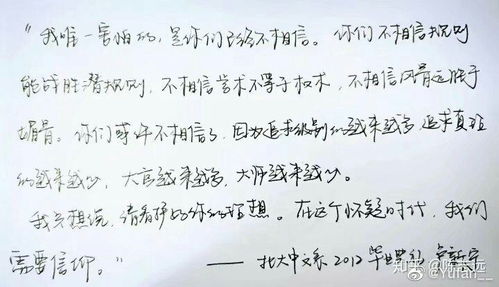 "我唯一害怕的，是你们已经不相信。你们不相信规则
能战胜潜规则，不相信学术不等于权术，不相信风骨远胜于
媚骨。你们或许不相信了，因为追求级别的越来越多，追求真理
的越来越少，大官越来越多，大师越来越少。
我只想说，请看护好你们的理想。在这个怀疑时代，我们
需要信仰。"
——北大中文系2012 毕业典礼 卢新宁
知乎 @陈志远
@Yufan__